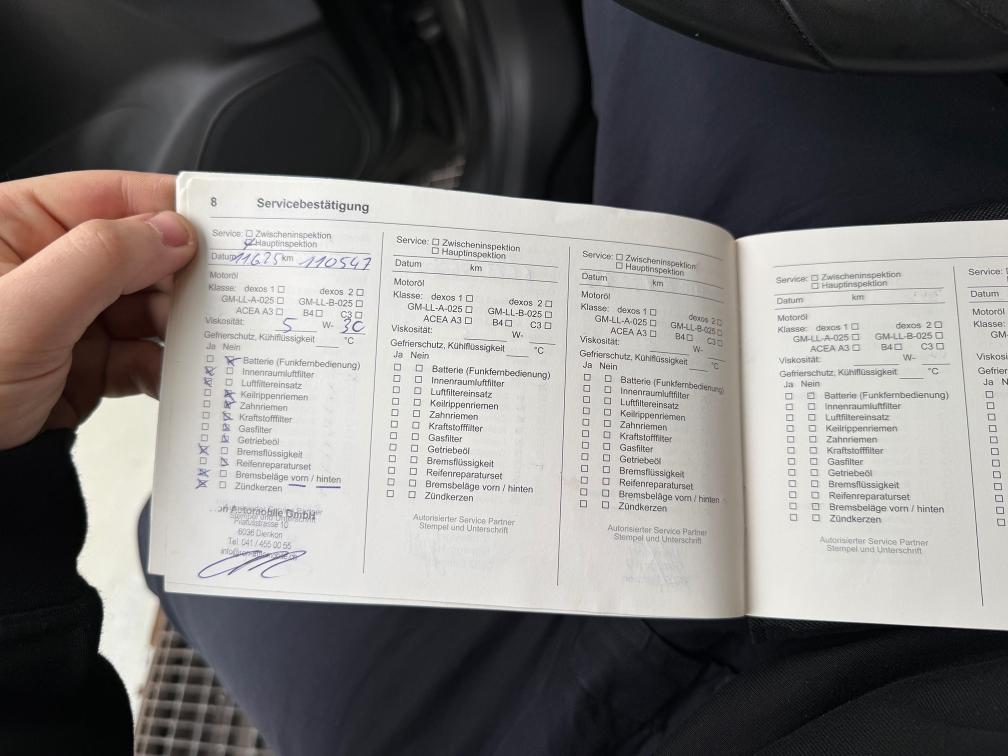 8 Servicebestätigung
Service: ☐ Zwischeninspektion
☑ Hauptinspektion
Datum 11625 km 110547
Motoröl
Klasse: dexos 1 ☐ dexos 2 ☐
GM-LL-A-025 ☐ GM-LL-B-025 ☐
ACEA A3 ☐ B4 ☐ C3 ☐
Viskosität: 5 W- 30
Gefrierschutz, Kühlflüssigkeit °C
Ja Nein
☐ ☒ Batterie (Funkfernbedienung)
☒ ☐ Innenraumluftfilter
☒ ☐ Luftfiltereinsatz
☐ ☒ Keilrippenriemen
☐ ☒ Zahnriemen
☐ ☒ Kraftstofffilter
☐ ☒ Gasfilter
☐ ☒ Getriebeöl
☒ ☐ Bremsflüssigkeit
☐ ☒ Reifenreparaturset
☒ ☐ Bremsbeläge vorn / hinten
☒ ☐ Zündkerzen
Automobile GmbH
Pilatusstrasse 10
6036 Dierikon
Tel. 041 / 455 00 55
Service: ☐ Zwischeninspektion
☐ Hauptinspektion
Datum km
Motoröl
Klasse: dexos 1 ☐ dexos 2 ☐
GM-LL-A-025 ☐ GM-LL-B-025 ☐
ACEA A3 ☐ B4 ☐ C3 ☐
Viskosität: W-
Gefrierschutz, Kühlflüssigkeit °C
Ja Nein
☐ ☐ Batterie (Funkfernbedienung)
☐ ☐ Innenraumluftfilter
☐ ☐ Luftfiltereinsatz
☐ ☐ Keilrippenriemen
☐ ☐ Zahnriemen
☐ ☐ Kraftstofffilter
☐ ☐ Gasfilter
☐ ☐ Getriebeöl
☐ ☐ Bremsflüssigkeit
☐ ☐ Reifenreparaturset
☐ ☐ Bremsbeläge vorn / hinten
☐ ☐ Zündkerzen
Autorisierter Service Partner
Stempel und Unterschrift
Service: ☐ Zwischeninspektion
☐ Hauptinspektion
Datum km
Motoröl
Klasse: dexos 1 ☐ dexos 2 ☐
GM-LL-A-025 ☐ GM-LL-B-025 ☐
ACEA A3 ☐ B4 ☐ C3 ☐
Viskosität: W-
Gefrierschutz, Kühlflüssigkeit °C
Ja Nein
☐ ☐ Batterie (Funkfernbedienung)
☐ ☐ Innenraumluftfilter
☐ ☐ Luftfiltereinsatz
☐ ☐ Keilrippenriemen
☐ ☐ Zahnriemen
☐ ☐ Kraftstofffilter
☐ ☐ Gasfilter
☐ ☐ Getriebeöl
☐ ☐ Bremsflüssigkeit
☐ ☐ Reifenreparaturset
☐ ☐ Bremsbeläge vorn / hinten
☐ ☐ Zündkerzen
Autorisierter Service Partner
Stempel und Unterschrift
Service: ☐ Zwischeninspektion
☐ Hauptinspektion
Datum km
Motoröl
Klasse: dexos 1 ☐ dexos 2 ☐
GM-LL-A-025 ☐ GM-LL-B-025 ☐
ACEA A3 ☐ B4 ☐ C3 ☐
Viskosität: W-
Gefrierschutz, Kühlflüssigkeit °C
Ja Nein
☐ ☐ Batterie (Funkfernbedienung)
☐ ☐ Innenraumluftfilter
☐ ☐ Luftfiltereinsatz
☐ ☐ Keilrippenriemen
☐ ☐ Zahnriemen
☐ ☐ Kraftstofffilter
☐ ☐ Gasfilter
☐ ☐ Getriebeöl
☐ ☐ Bremsflüssigkeit
☐ ☐ Reifenreparaturset
☐ ☐ Bremsbeläge vorn / hinten
☐ ☐ Zündkerzen
Autorisierter Service Partner
Stempel und Unterschrift
Service:
Datum
Motoröl
Klasse:
Viskosi
Gefrier
Ja N